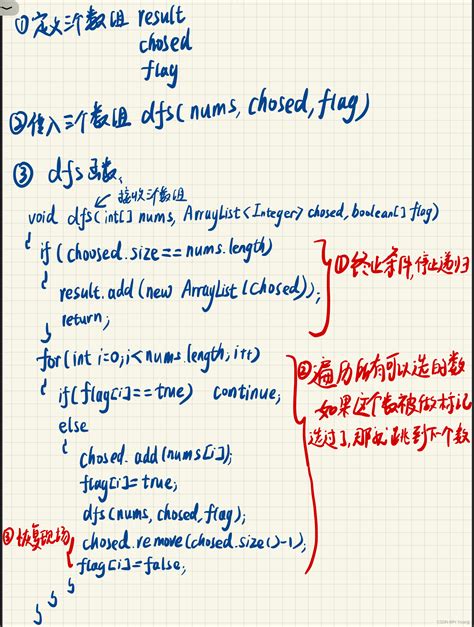 ①定义三个数组 result
chosed
flag
②传入三个数组 dfs(nums, chosed, flag)
③ dfs函数、
接收三个数组
void dfs(int[] nums, ArrayList<Integer> chosed, boolean[] flag)
{ if(choosed.size==nums.length)
{ result.add(new ArrayList(chosed));
return;
}
①终止条件,停止递归
for(int i=0;i<nums.length;i++)
{ if(flag[i]==true) continue;
else
{ chosed.add(nums[i]);
flag[i]=true;
dfs(nums, chosed, flag);
chosed.remove(chosed.size()-1);
flag[i]=false;
}
}
}
②遍历所有可以选的数
如果这个数被做标记
选过了,那就跳到下个数
③恢复现场